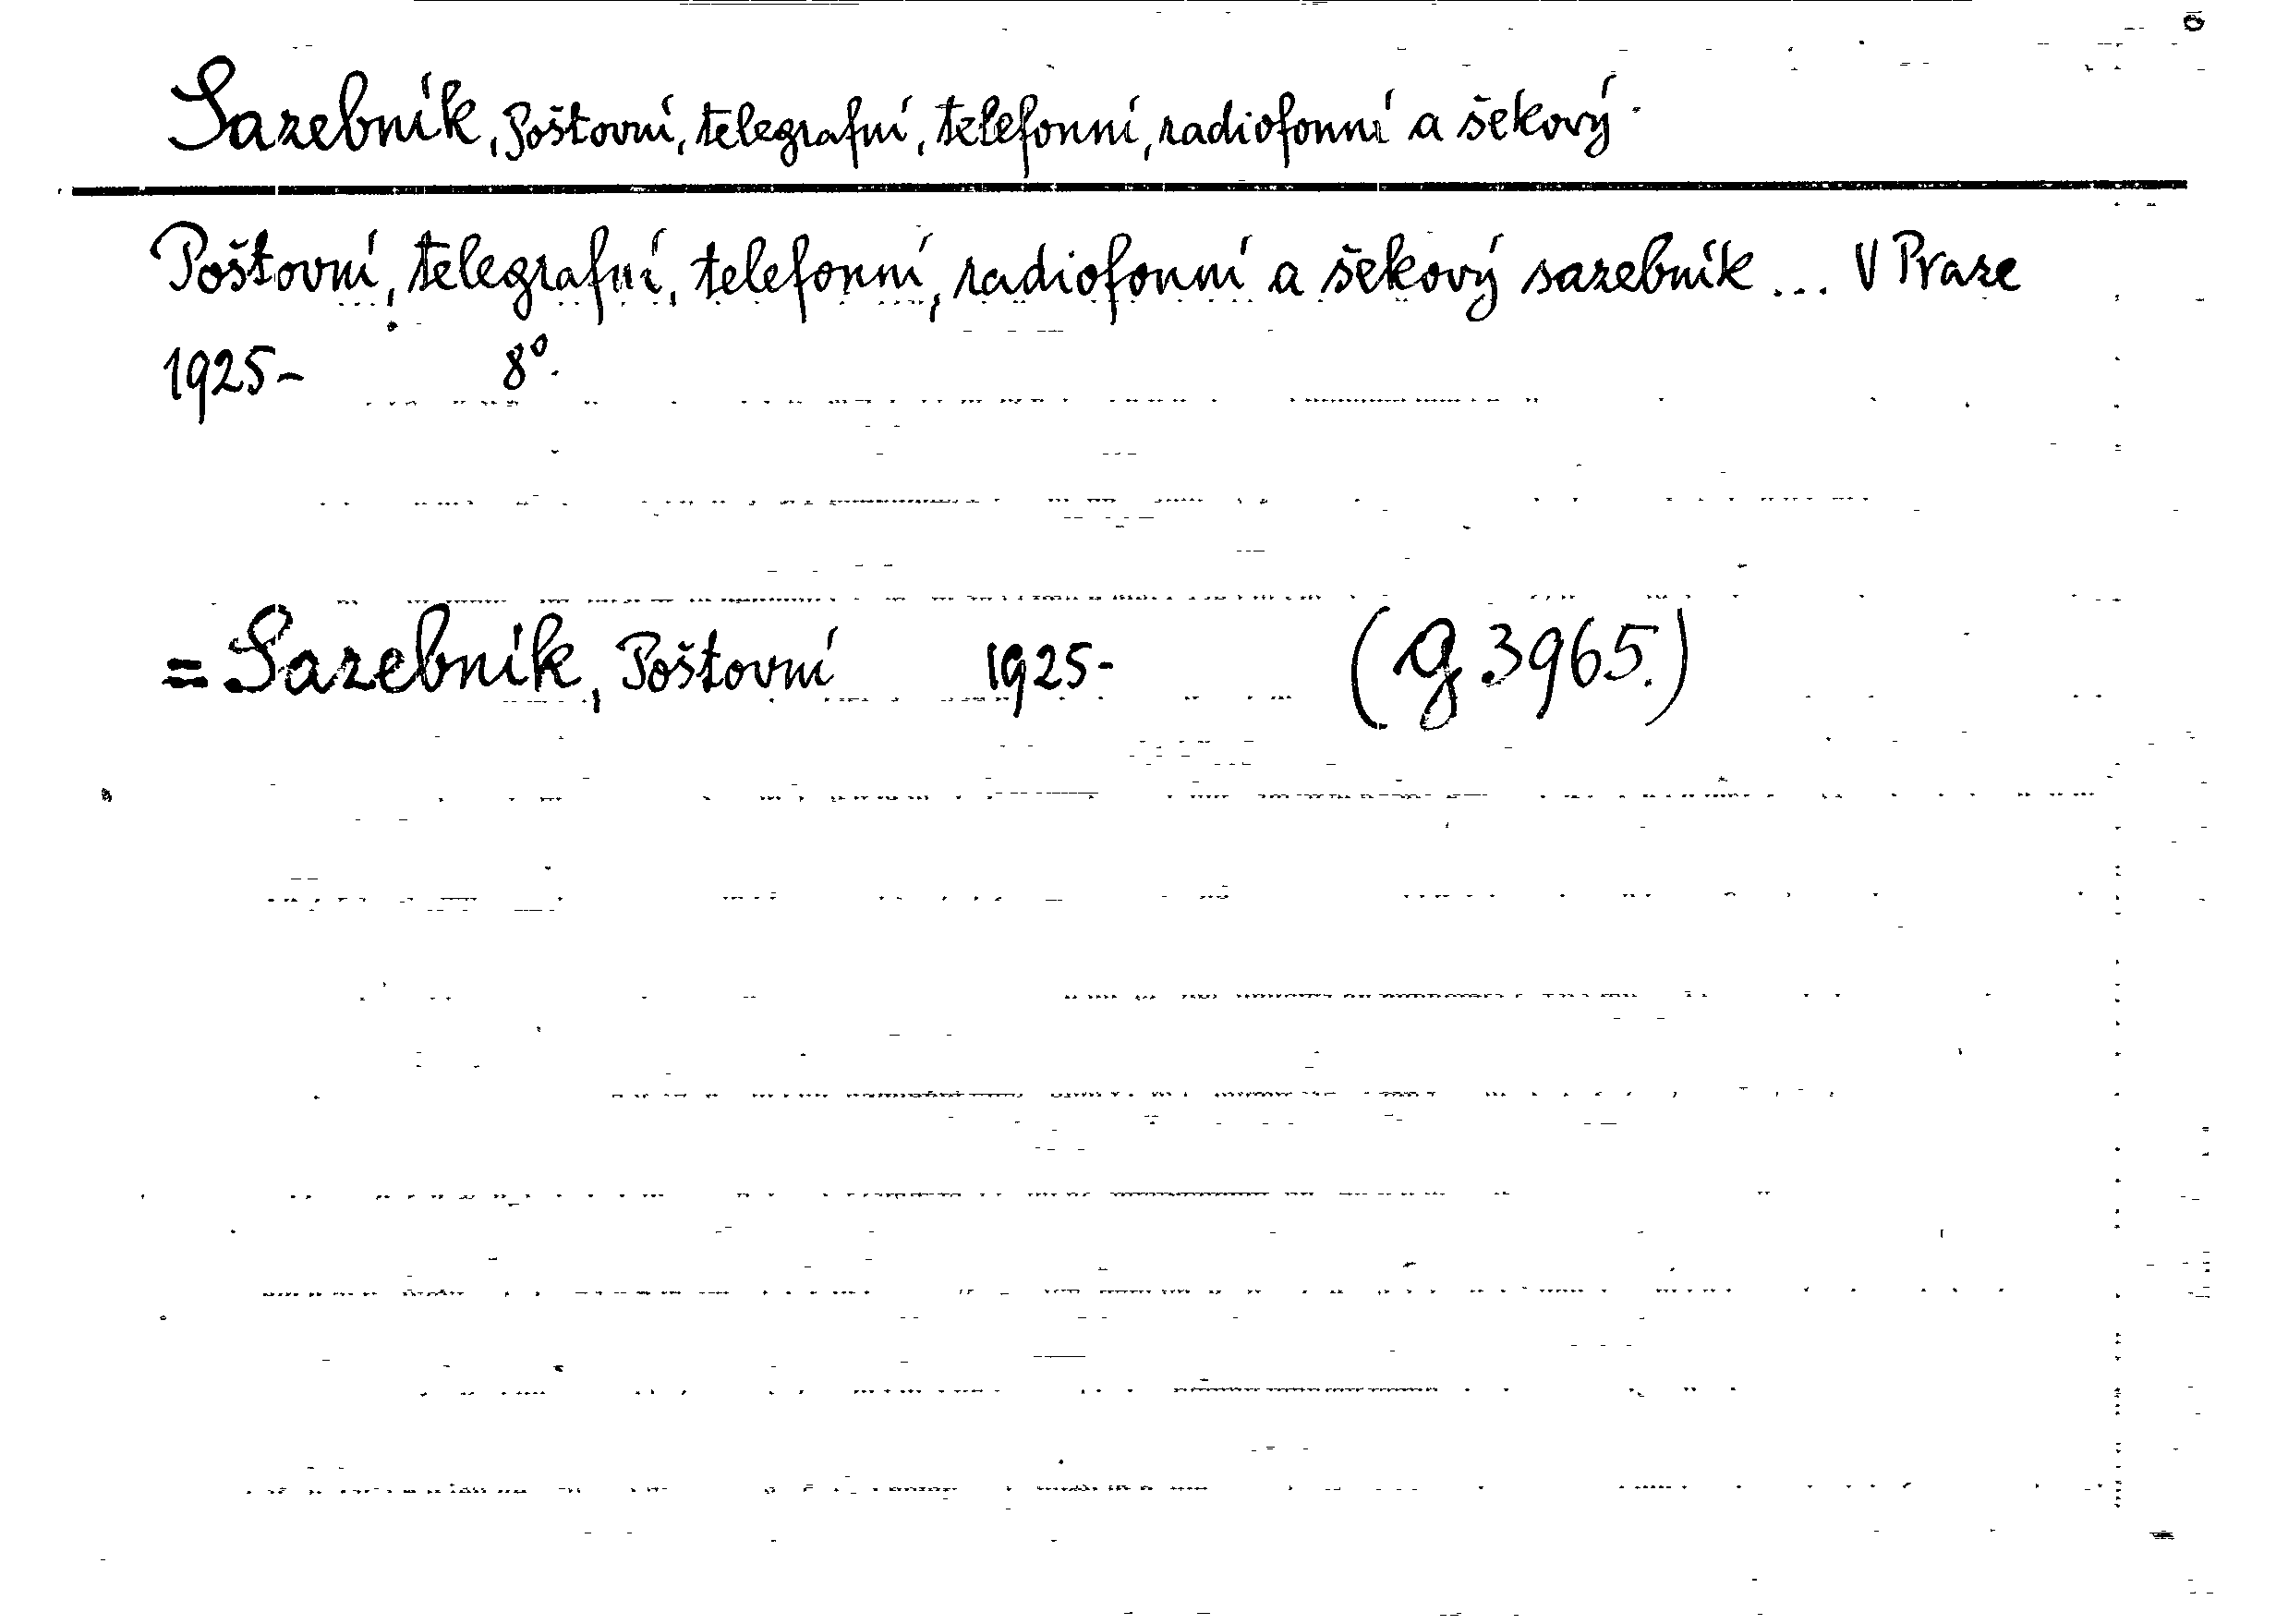 Sazebník, Poštovní, telegrafní, telefonní, radiofonní a šekový.
Poštovní, telegrafní, telefonní, radiofonní a šekový sazebník ... V Praze
1925- 8°.
= Sazebník, Poštovní 1925- (g 3965.)